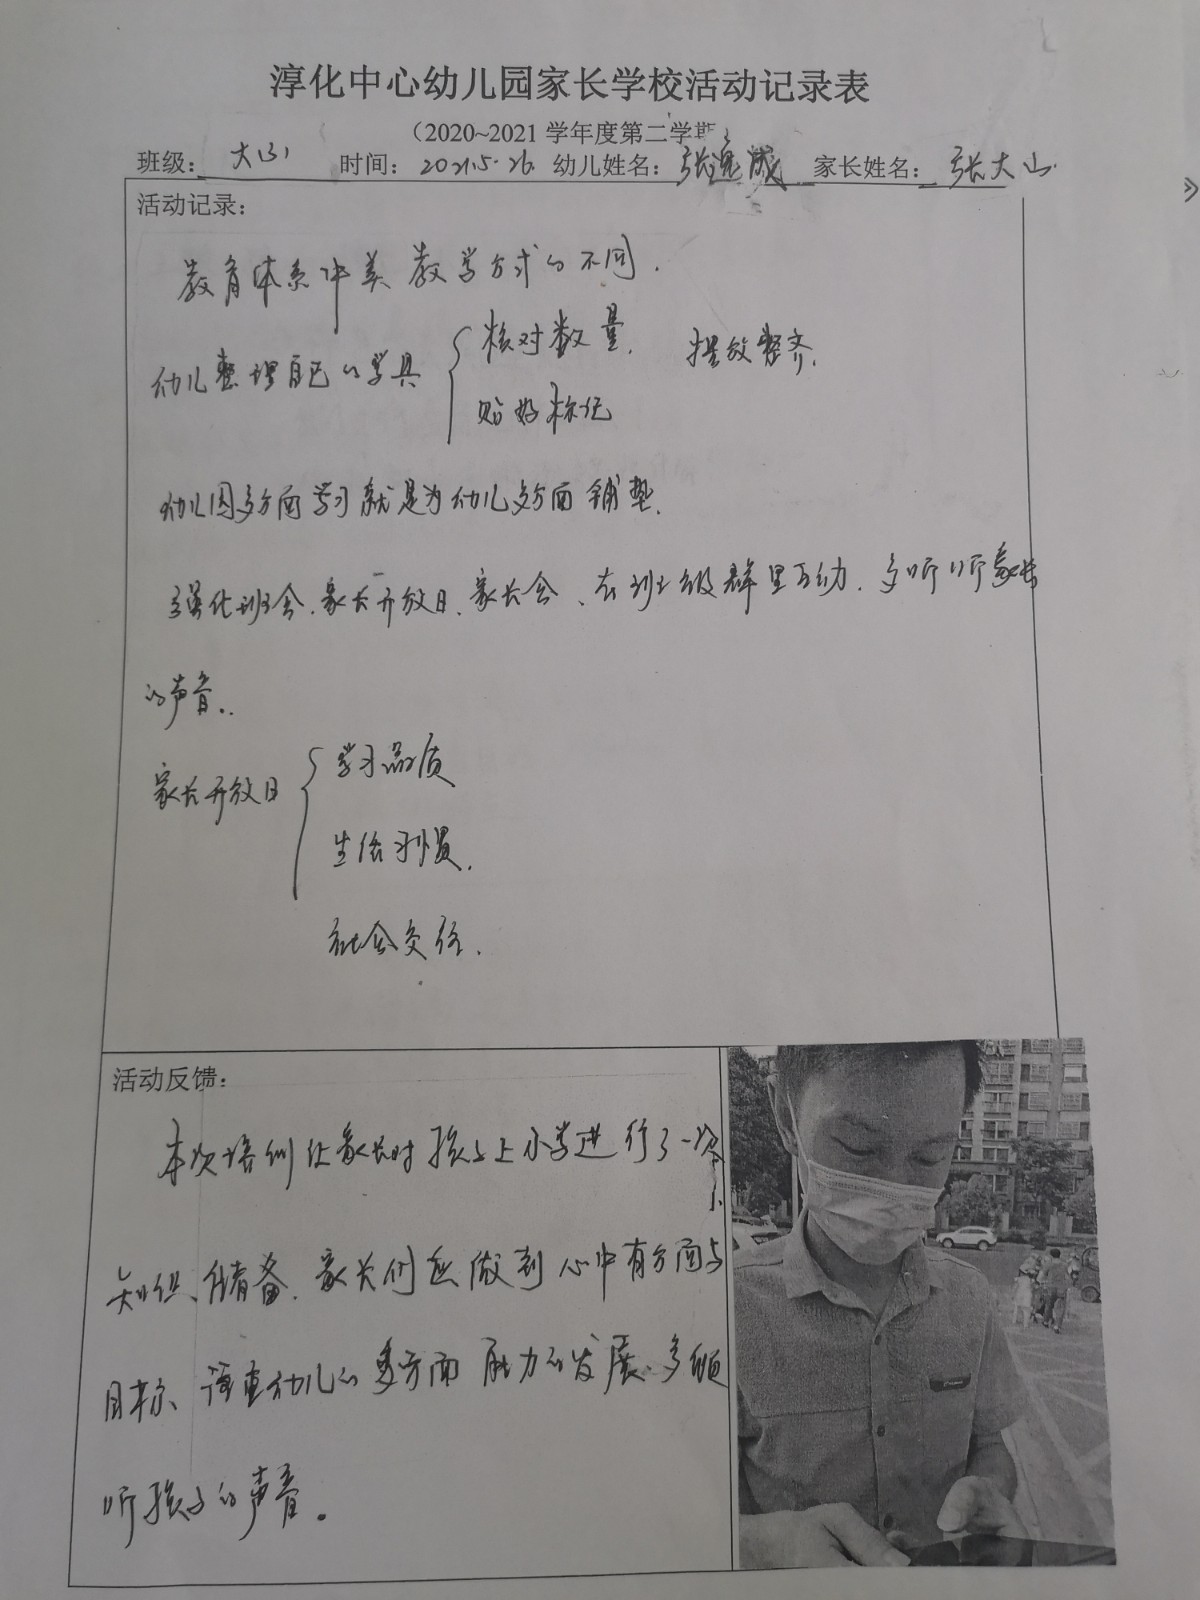 淳化中心幼儿园家长学校活动记录表
（2020~2021 学年度第二学期
班级： 大 时间： 2021.5.26. 幼儿姓名： 张逸晟 家长姓名： 张大山
活动记录：
教育体系中美教学方式的不同.
幼儿整理自己的学具 核对数量. 摆放整齐.
贴好标记
幼儿园多方面学习就是为幼儿多方面铺垫.
强化班会、家长开放日、家长会、在班级群里互动. 多听听家长
的声音..
家长开放日 学习品质
生活习惯.
社会交往.
活动反馈：
本次培训让家长对孩子上小学进行了一次
知识、储备. 家长们应做到心中有方向与
目标、注重幼儿的多方面能力的发展、多倾
听孩子的声音。